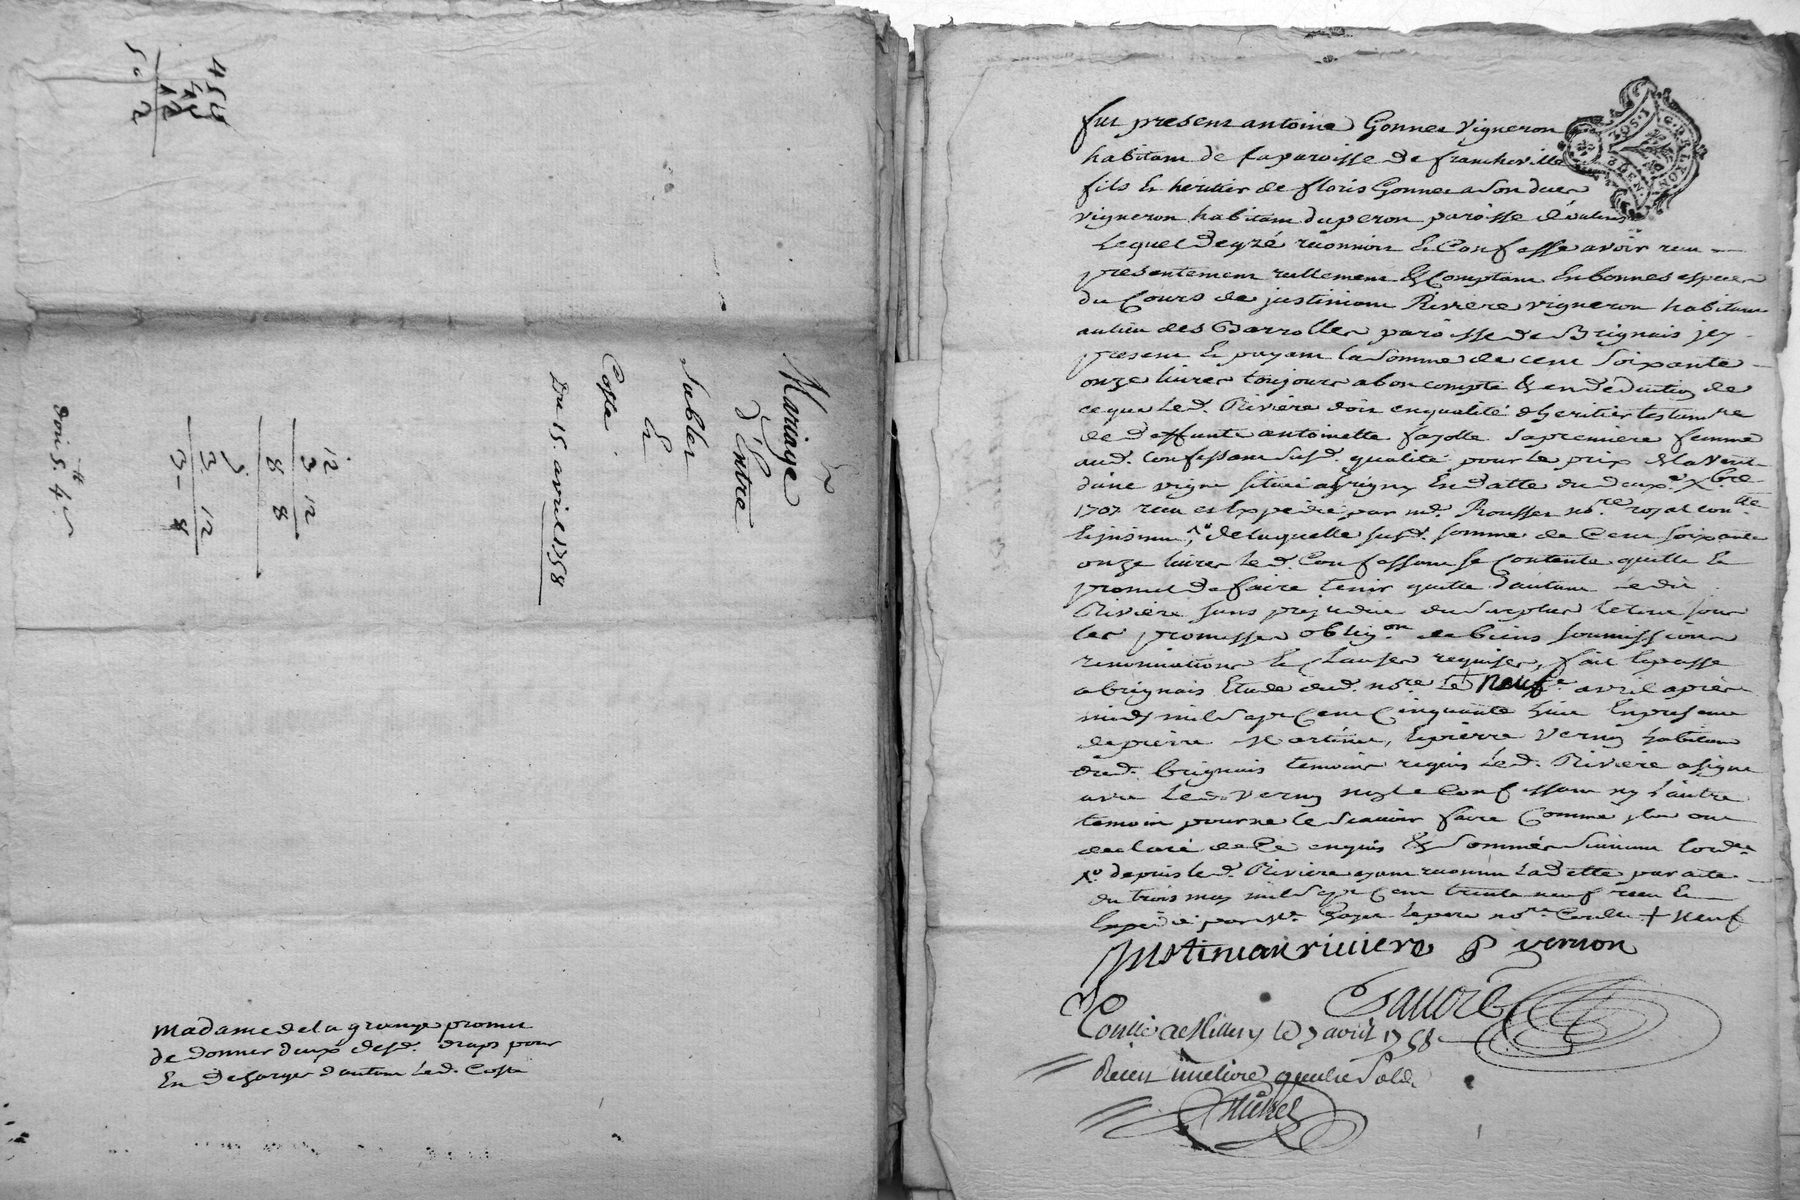 454
45
12
50 2
Mariage
d'Entre
Sabler
Et
Coste
Du 15. avril 1758
12
3 12
8 8
3 12
3 8
doit 5.ˡᵗ 4ˢ
Madame de la grange promet
de donner deux desd. draps pour
En decharger d'autant led. Coste
G. DE LYON
fut present antoine Gonnet vigneron
habitant de la paroisse de francheville
fils et heritier de floris Gonnet a son dues
vigneron habitant du peron paroisse d'oulins
Lequel de gré reconnoit et Confesse avoir reçu
presentement reellement & Comptant En bonnes especes
du Cours de justinian Riviere vigneron habitant
au lieu des Barrolles paroisse de Brignais jcy
present et payant la somme de cent soixante
onze livres toujours a bon compte & en deduction de
ce que Led. Riviere doit en qualité d'heritier testam.re
de deffunte antoinette fayolle sa premiere femme
aud. Confessant susd. qualité pour le prix de la vente
d'une vigne située a jrigny En datte du deux.e xbre
1707 reçu et Expedié par m.e Rousset no.re royal con.lle
et jnsinu.é, de laquelle susd. somme de Cent soixante
onze livres Led. Confessant se Contente quitte et
promet de faire tenir quitte d'autant ledit
Riviere sans prejudice du surplus le tout sous
les promesses oblig.on de biens soumissions
renonciations et Clauses requises, fait et passé
a brignais Etude dud. no.re Le + Neuf.e avril apres
midy mil sept Cent Cinquante huit En presence
de pierre Martinet, et pierre Verny habitans
dud. brignais temoins requis Led. Riviere a signé
avec Led. Verny non le Confessant ny l'autre
temoin pour ne le scauoir faire Comme jls ont
declaré de Ce enquis & sommés suivant Lord.ce
depuis led. Riviere ayant reconnu La dette par acte
du trois may mil sept Cent trente neuf reçu et
Expedié par M.e Goyet Le pere no.re Cecelle + Neuf
Justinian riuiere P vernon
Gautre
Conllé a Millery le 9 avril 1758
Reçu une livre quatre sols
Michel